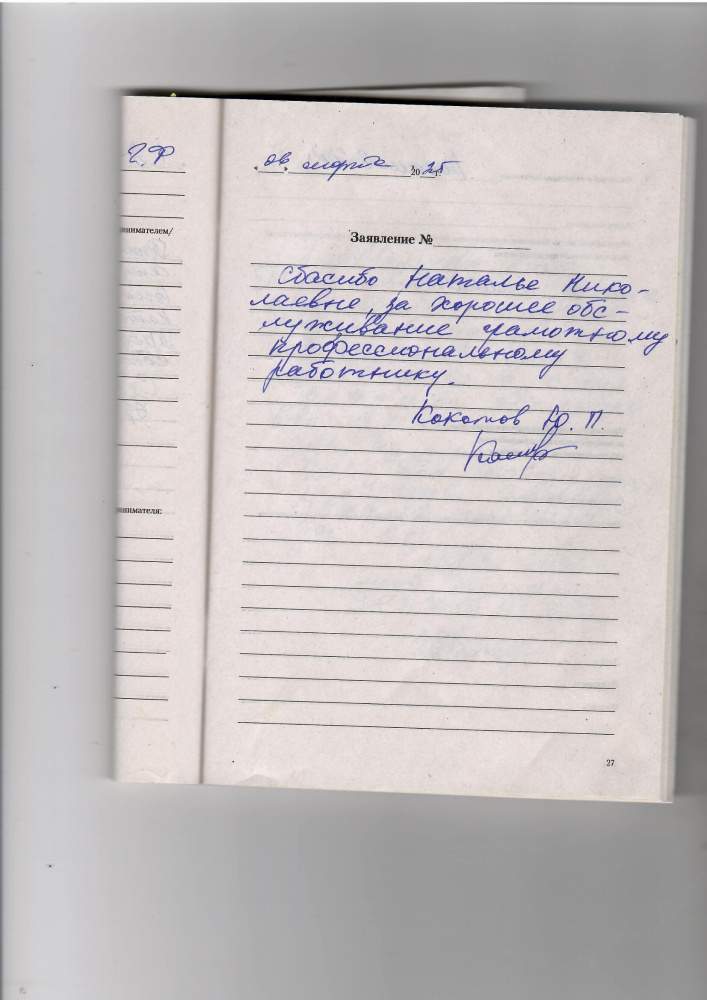 Г.Ф
. 08. марта 2025 г.
нимателем/
Заявление №
Спасибо Наталье Нико-
лаевне, за хорошее обс-
луживание грамотному
профессиональному
работнику.
Кокотов Ю. П.
нимателя:
27